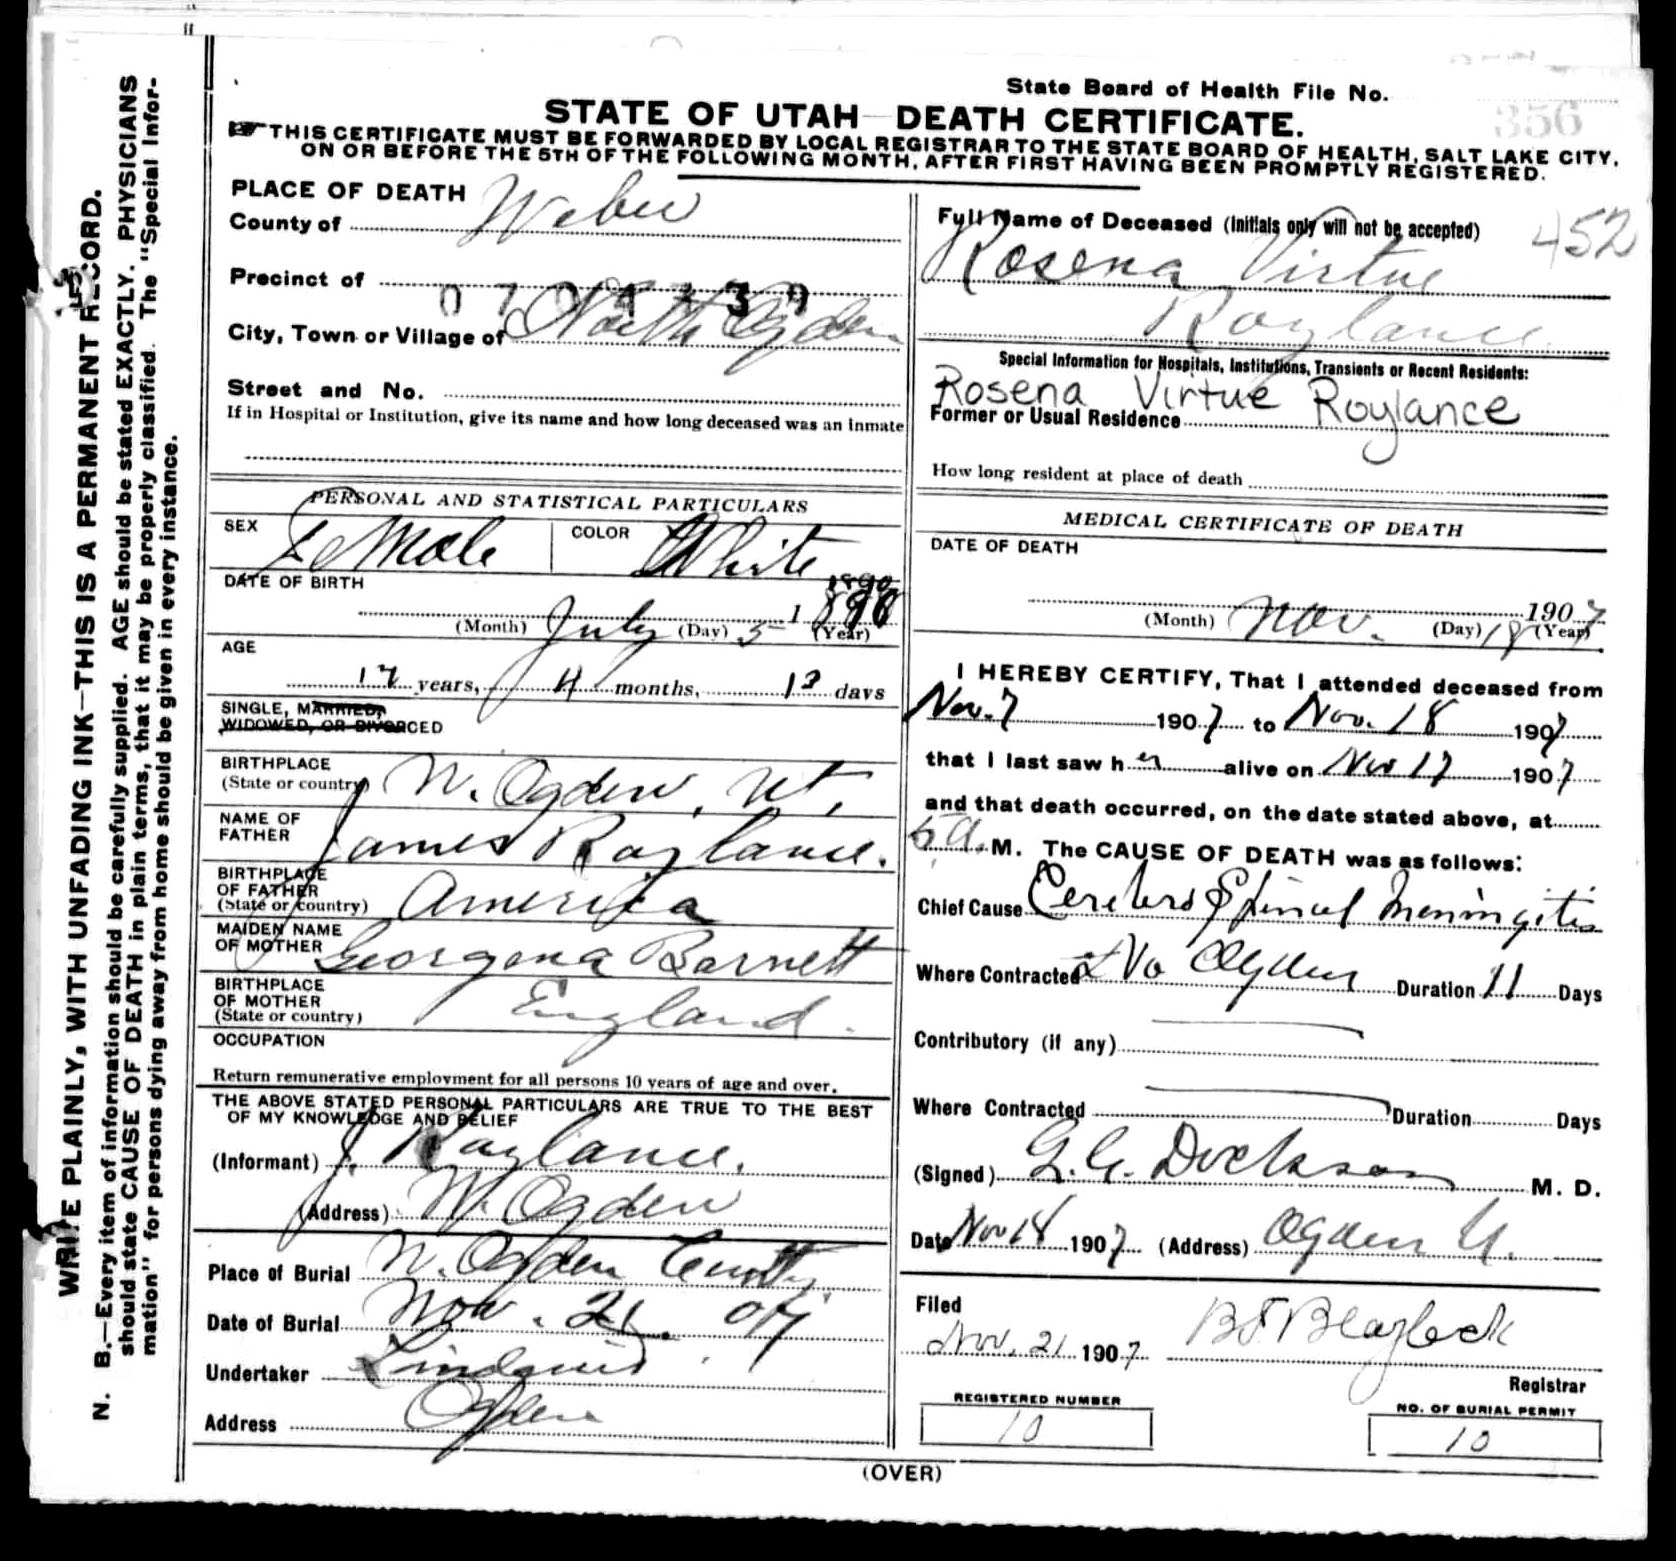 State Board of Health File No.
356
STATE OF UTAH DEATH CERTIFICATE.
THIS CERTIFICATE MUST BE FORWARDED BY LOCAL REGISTRAR TO THE STATE BOARD OF HEALTH, SALT LAKE CITY,
ON OR BEFORE THE 5TH OF THE FOLLOWING MONTH, AFTER FIRST HAVING BEEN PROMPTLY REGISTERED.
WRITE PLAINLY, WITH UNFADING INK—THIS IS A PERMANENT RECORD.
N. B.—Every item of information should be carefully supplied. AGE should be stated EXACTLY. PHYSICIANS
should state CAUSE OF DEATH in plain terms, that it may be properly classified. The "Special Infor-
mation" for persons dying away from home should be given in every instance.
PLACE OF DEATH
County of Weber
Precinct of
City, Town or Village of North Ogden
Street and No.
If in Hospital or Institution, give its name and how long deceased was an inmate
PERSONAL AND STATISTICAL PARTICULARS
SEX Female COLOR White
DATE OF BIRTH
1890
(Month) July (Day) 5 1890 (Year)
AGE
17 years, 4 months, 13 days
SINGLE, MARRIED,
WIDOWED, OR DIVORCED
BIRTHPLACE
(State or country) N. Ogden, Ut.
NAME OF
FATHER James Roylance.
BIRTHPLACE
OF FATHER
(State or country) America
MAIDEN NAME
OF MOTHER Georgena Barnett
BIRTHPLACE
OF MOTHER
(State or country) England.
OCCUPATION
Return remunerative employment for all persons 10 years of age and over.
THE ABOVE STATED PERSONAL PARTICULARS ARE TRUE TO THE BEST
OF MY KNOWLEDGE AND BELIEF
(Informant) J. Roylance.
(Address) N. Ogden
Place of Burial N. Ogden
Date of Burial Nov. 21. 07
Undertaker Lindquist
Address Ogden
Full Name of Deceased (Initials only will not be accepted)
452
Rosena Virtue
Roylance
Special Information for Hospitals, Institutions, Transients or Recent Residents:
Rosena Virtue Roylance
Former or Usual Residence
How long resident at place of death
MEDICAL CERTIFICATE OF DEATH
DATE OF DEATH
1907
(Month) Nov. (Day) 18 (Year)
I HEREBY CERTIFY, That I attended deceased from
Nov. 7 1907 to Nov. 18 1907
that I last saw her alive on Nov 17 1907
and that death occurred, on the date stated above, at
5 a. M. The CAUSE OF DEATH was as follows:
Chief Cause Cerebro Spinal Meningitis
Where Contracted No Ogden Duration 11 Days
Contributory (if any)
Where Contracted Duration Days
(Signed) Dickson M. D.
Date Nov 18 1907 (Address) Ogden U.
Filed
Nov. 21 1907 Blaylock
Registrar
REGISTERED NUMBER
10
NO. OF BURIAL PERMIT
10
(OVER)